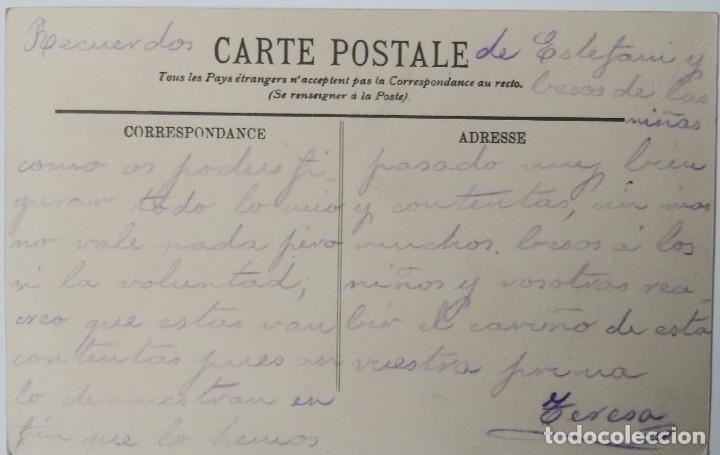 Recuerdos de Estefani y
besos de las
niñas
CARTE POSTALE
Tous les Pays étrangers n'acceptent pas la Correspondance au recto.
(Se renseigner à la Poste)
CORRESPONDANCE
como os podeis fi-
gurar todo lo mio
no vale nada pero
si la voluntad,
creo que estas van
contentas pues asi
lo demuestran en
fin que lo hemos
ADRESSE
pasado muy bien
y contentas, sin mas
muchos besos á los
niños y vosotras reci-
bir el cariño de esta
vuestra prima
Teresa
todocoleccion.net